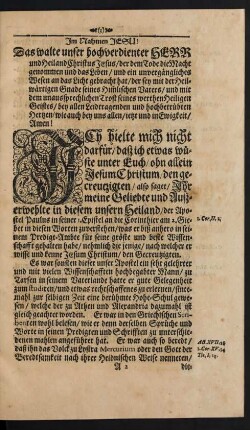 Im Nahmen JESU!
Das walte unser hochverdienter HERR
und Heiland Christus Jesus/ der dem Tode die Macht
genommen und das Leben/ und ein unvergängliches
Wesen an das Licht gebracht hat/ der sey mit der Heil-
wärtigen Gnade seines Himlischen Vaters/ und mit
dem unaussprechlichen Trost seines werthen Heiligen
Geistes/ bey allen Leidtragenden und hochbetrübten
Hertzen/ wie auch bey uns allen/ jetzt und in Ewigkeit/
Amen!
ICH hielte mich nicht
darfür/ daß ich etwas wü-
ste unter Euch/ ohn allein
Jesum Christum/ den ge-
creutzigten/ also saget/ Ihr
meine Geliebte und Auß-
erwehlte in diesem unsern Heiland/ der Apo-
stel Paulus in seiner 1. Epistel an die Corinthier am 2. Gie-
bet in diesen Worten zuverstehen/ was er biß anhero in sei-
nem Predigt-Ambte für seine gröste und beste Wissen-
schafft gehalten habe/ nehmlich die jenige/ nach welcher er
wisse und kenne Jesum Christum/ den Gecreutzigten.
Es war sonsten dieser unser Apostel ein sehr gelehrter
und mit vielen Wissenschafften hochbegabter Mann/ zu
Tarsen in seinem Vaterlande hatte er gute Gelegenheit
zum studiren/ und etwas rechtschaffenes zu erlernen/ sinte-
mahl zur selbigen Zeit eine berühmte Hohe-Schul gewe-
sen/ welche der zu Athen und Alexandria bezumahl ist
gleich geachtet worden. Er war in den Griechischen Scri-
benten wohl belesen/ wie er denn derselben Sprüche und
Worte in seinen Predigten und Schrifften zu unterschie-
denen mahlen angeführet hat. Er war auch so beredt/
daß ihn das Volck zu Lystra Mercurium oder den Gott der
Beredtsamkeit nach ihrer Heidnischen Weise nenneten/
A 2
1. Cor. II. 2.
Act. XVII. 28
1. Cor. XV. 34
Tit. I. 13.